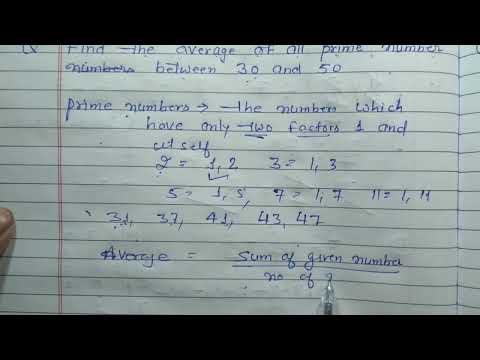 Q Find the average of all prime number
numbers between 30 and 50
prime numbers → the numbers which
have only two factors 1 and
it self
2 = 1, 2 3 = 1, 3
5 = 1, 5, 7 = 1, 7 11 = 1, 11
31, 37, 41, 43, 47
Average = sum of given number
no of